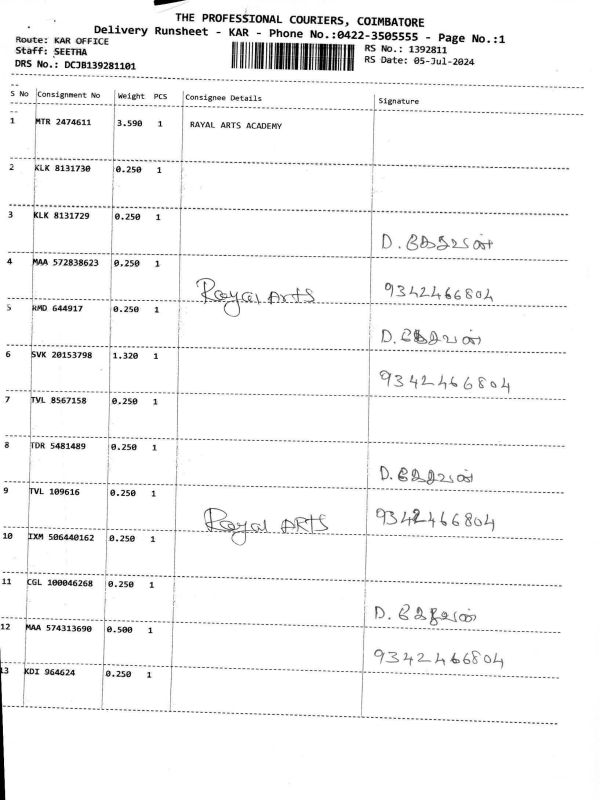 THE PROFESSIONAL COURIERS, COIMBATORE
Delivery Runsheet - KAR - Phone No.:0422-3505555 - Page No.:1
Route: KAR OFFICE
Staff: SEETHA
DRS No.: DCJB139281101
RS No.: 1392811
RS Date: 05-Jul-2024
S No Consignment No Weight PCS Consignee Details Signature
1 MTR 2474611 3.590 1 RAYAL ARTS ACADEMY
2 KLK 8131730 0.250 1
3 KLK 8131729 0.250 1
D.
4 MAA 572838623 0.250 1
Royal Arts 9342466804
5 RMD 644917 0.250 1
D.
6 SVK 20153798 1.320 1
9342466804
7 TVL 8567158 0.250 1
8 TDR 5481489 0.250 1
D.
9 TVL 109616 0.250 1
Royal ARTS 9342466804
10 IXM 506440162 0.250 1
11 CGL 100046268 0.250 1
D.
12 MAA 574313690 0.500 1
9342466804
13 KDI 964624 0.250 1